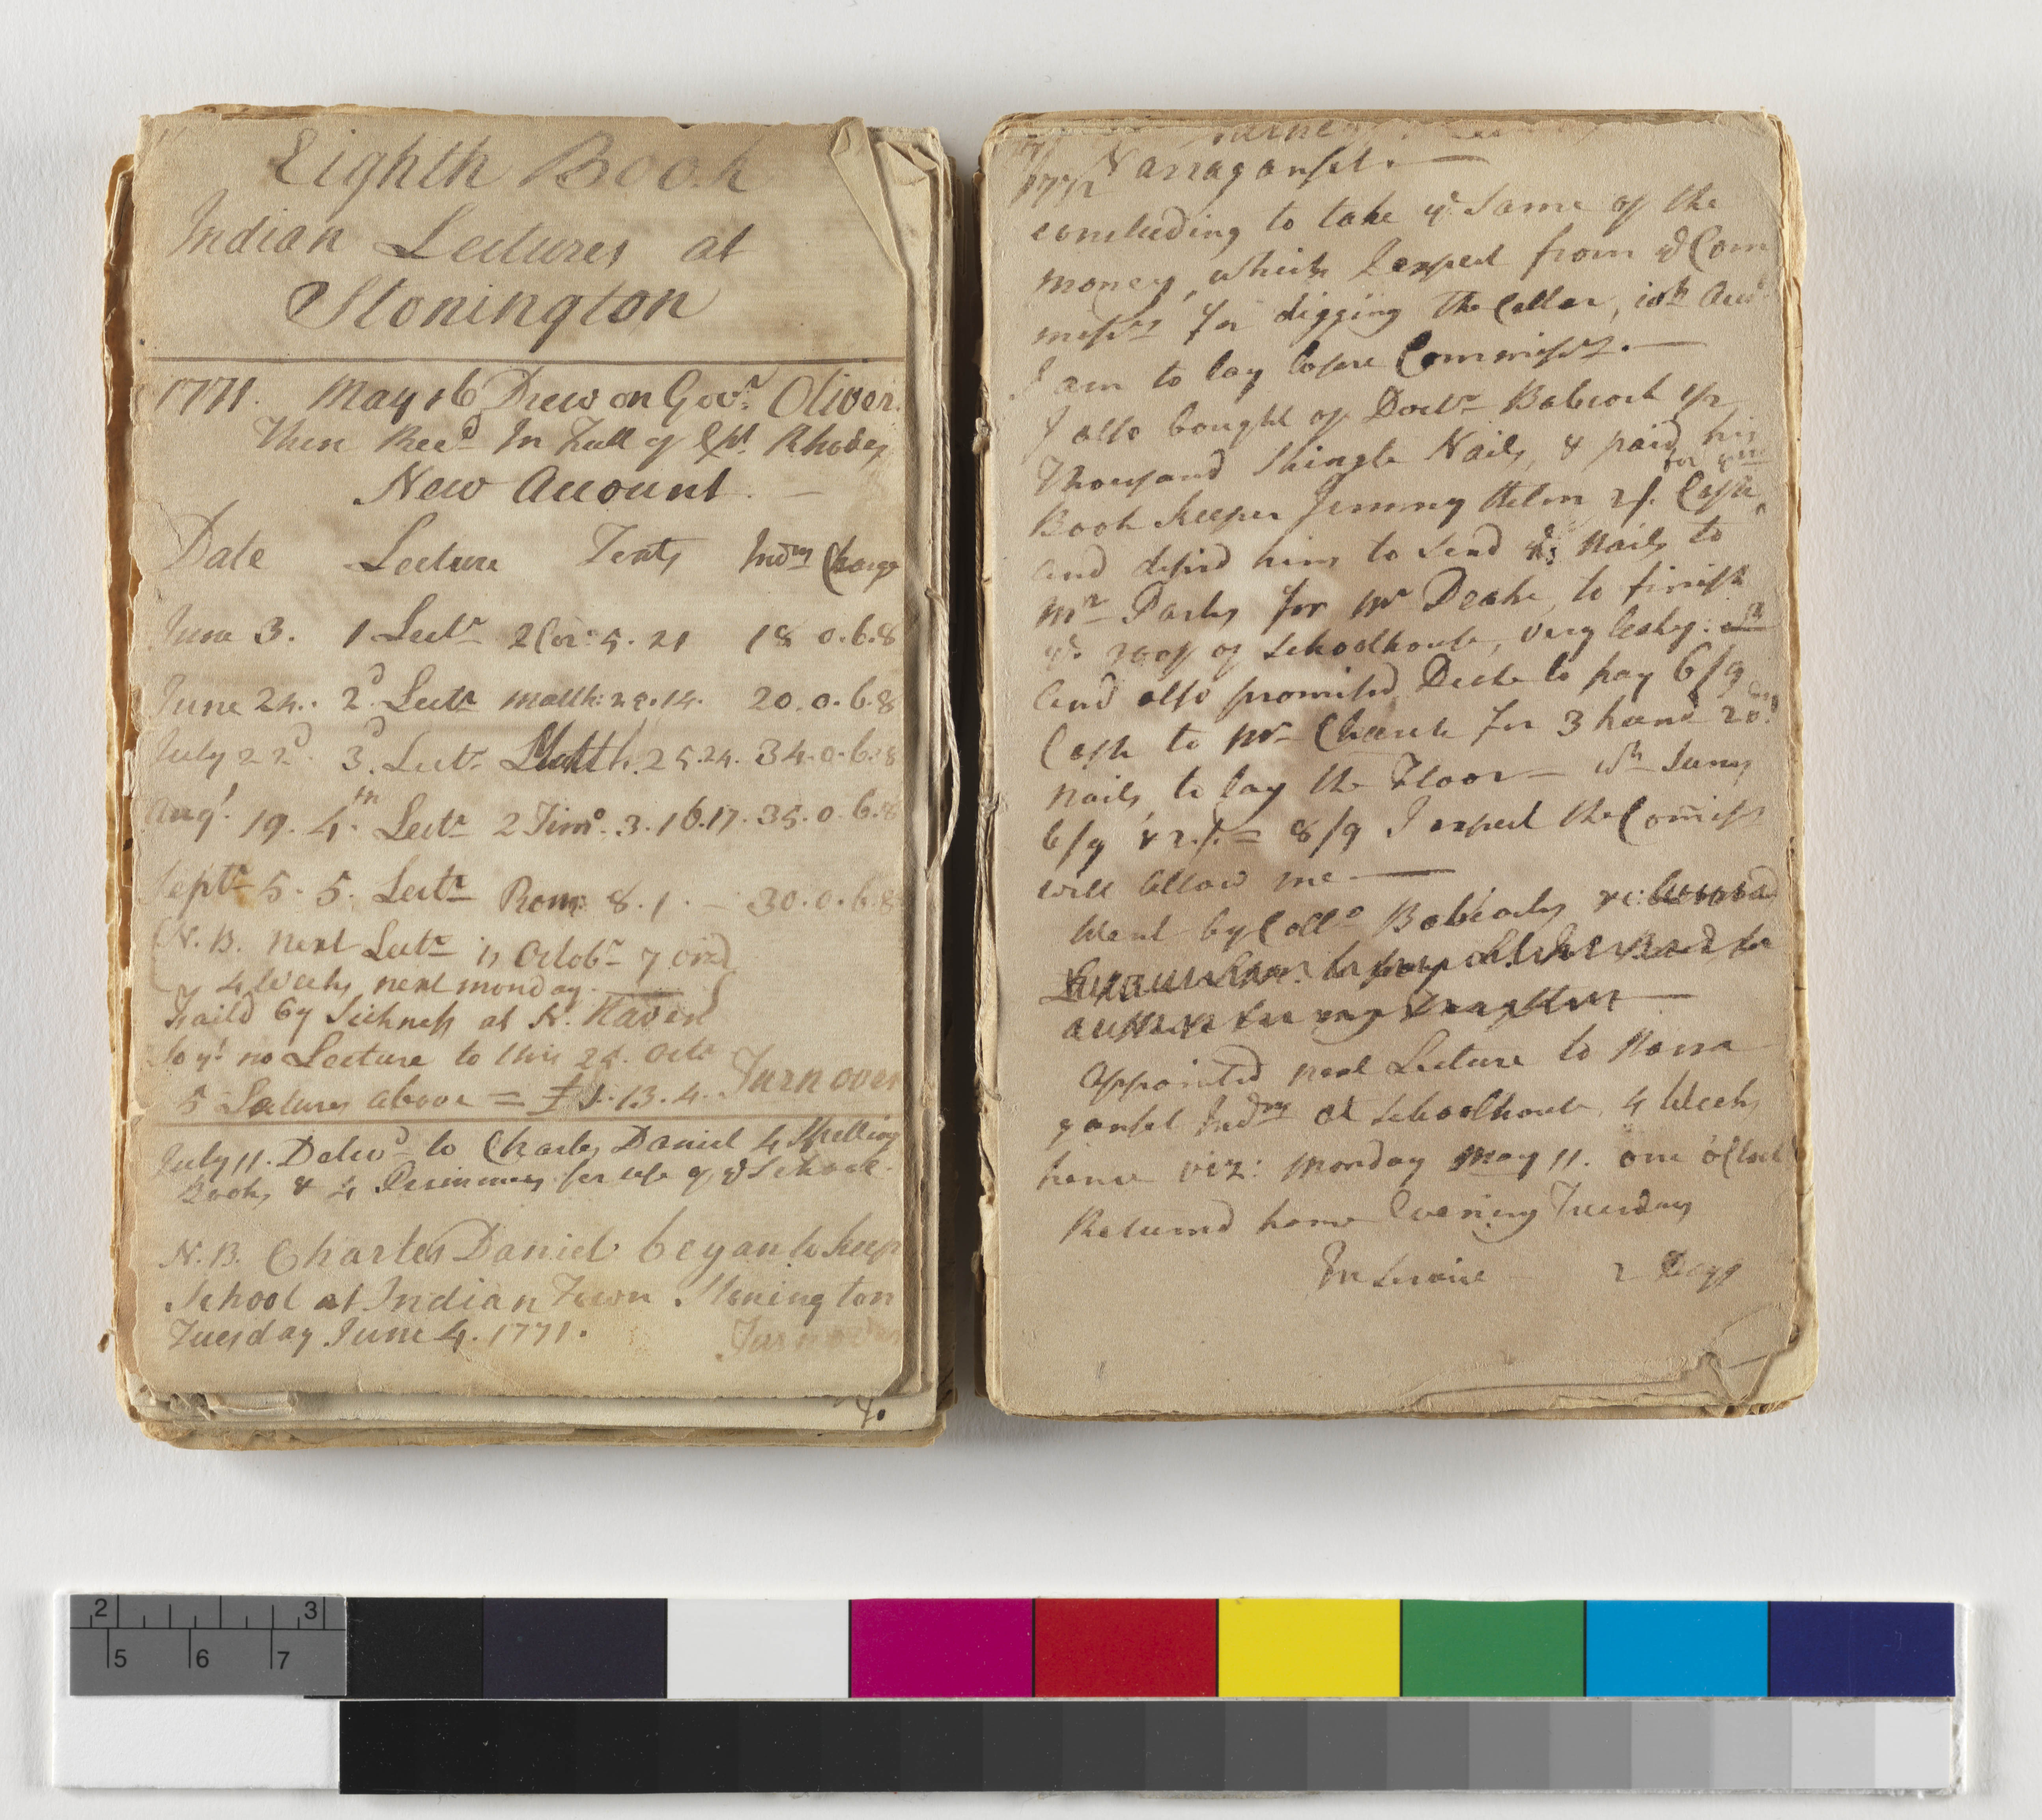 Eighth Book
Indian Lectures at
Stonington
1771. May 16 Drew on Govr. Oliver.
Then Recd In Full of Rhodes
New Account. —
Date Lecture Texts Indns Charge
June 3. 1 Lectr 2 Cor: 5. 21 18 0.6.8
June 24. 2d Lectr Matth: 22.14. 20.0.6.8
July 22d. 3d. Lectr Matth. 25.24. 34.0.6.8
Augt. 19. 4th. Lectr 2 Timo. 3.16.17. 35.0.6.8
Septr 5. 5. Lectr Rom: 8.1. — 30.0.6.8
N.B. next Lectr is Octobr 7
4 Weeks next monday.
Faild by Sickness at N. Haven
So yt no Lecture to this 24. Octr
5 Lectures above = £1.13.4. Turn over
July 11. Delivd to Charles Daniel 4 Spelling
Books & 4 Primmers for use of ye School.
N.B. Charles Daniel began to keep
School at Indian Town Stonington
Tuesday June 4. 1771. Turn over
Narraganset. —
concluding to take ye Same of the
money, which I expect from ye Com
missrs for digging the Cellar, wh Accot
I am to lay before Commissrs. —
I also bought of Doctr Babcock
Thousand Shingle Nails, & paid his
for ym
Book keeper Jemmy 2/. Cash,
and desird him to send ye Nails to
Mr for Mr Deake, to finish
ye roof of Schoolhouse, very leaky:
and also promised Deake to pay 6/9
Cash to Mr Church for 3 hund 20d.
nails to lay the Floor — wh Sums
6/9 & 2/. = 8/9 I expect the Comissrs
will allow me —
Went by Collo Babcocks
appointed next Lecture to Narra
ganset Indns at Schoolhouse, 4 Weeks
hence viz: Monday May 11. one oClock
Returnd home Evening Tuesday
In Service — 2 Days
2 3
5 6 7